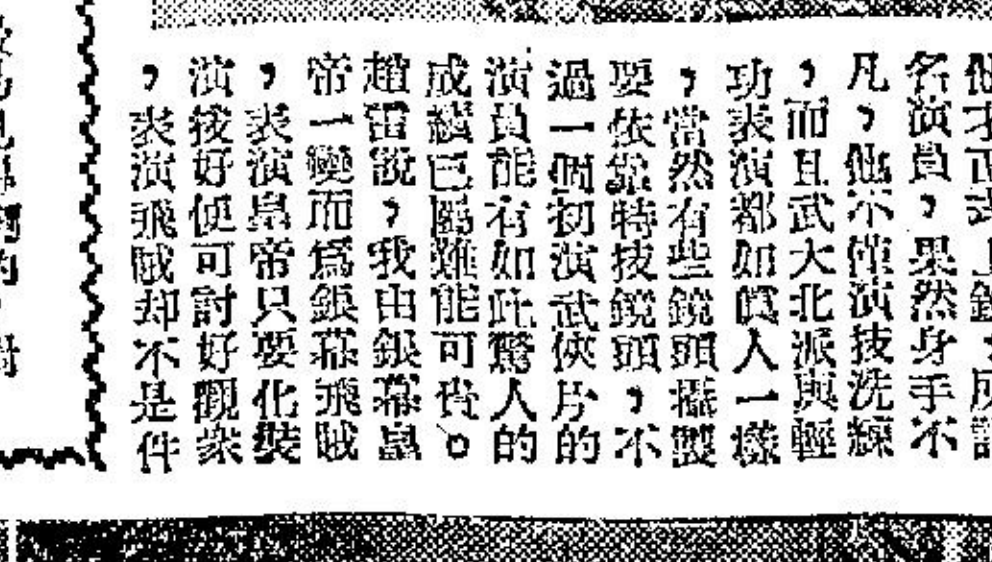 他才正式上鏡
名演員，果然身手不
凡，他不僅演技洗練
，而且武大北派與輕
功表演都如眞人一樣
，當然有些鏡頭攝製
要依靠特技鏡頭，不
過一個初演武俠片的
演員能有如此驚人的
成績已屬難能可貴。
趙雷說，我由銀幕皇
帝一變而爲銀幕飛賊
，表演皇帝只要化裝
演技好便可討好觀衆
，表演飛賊却不是件